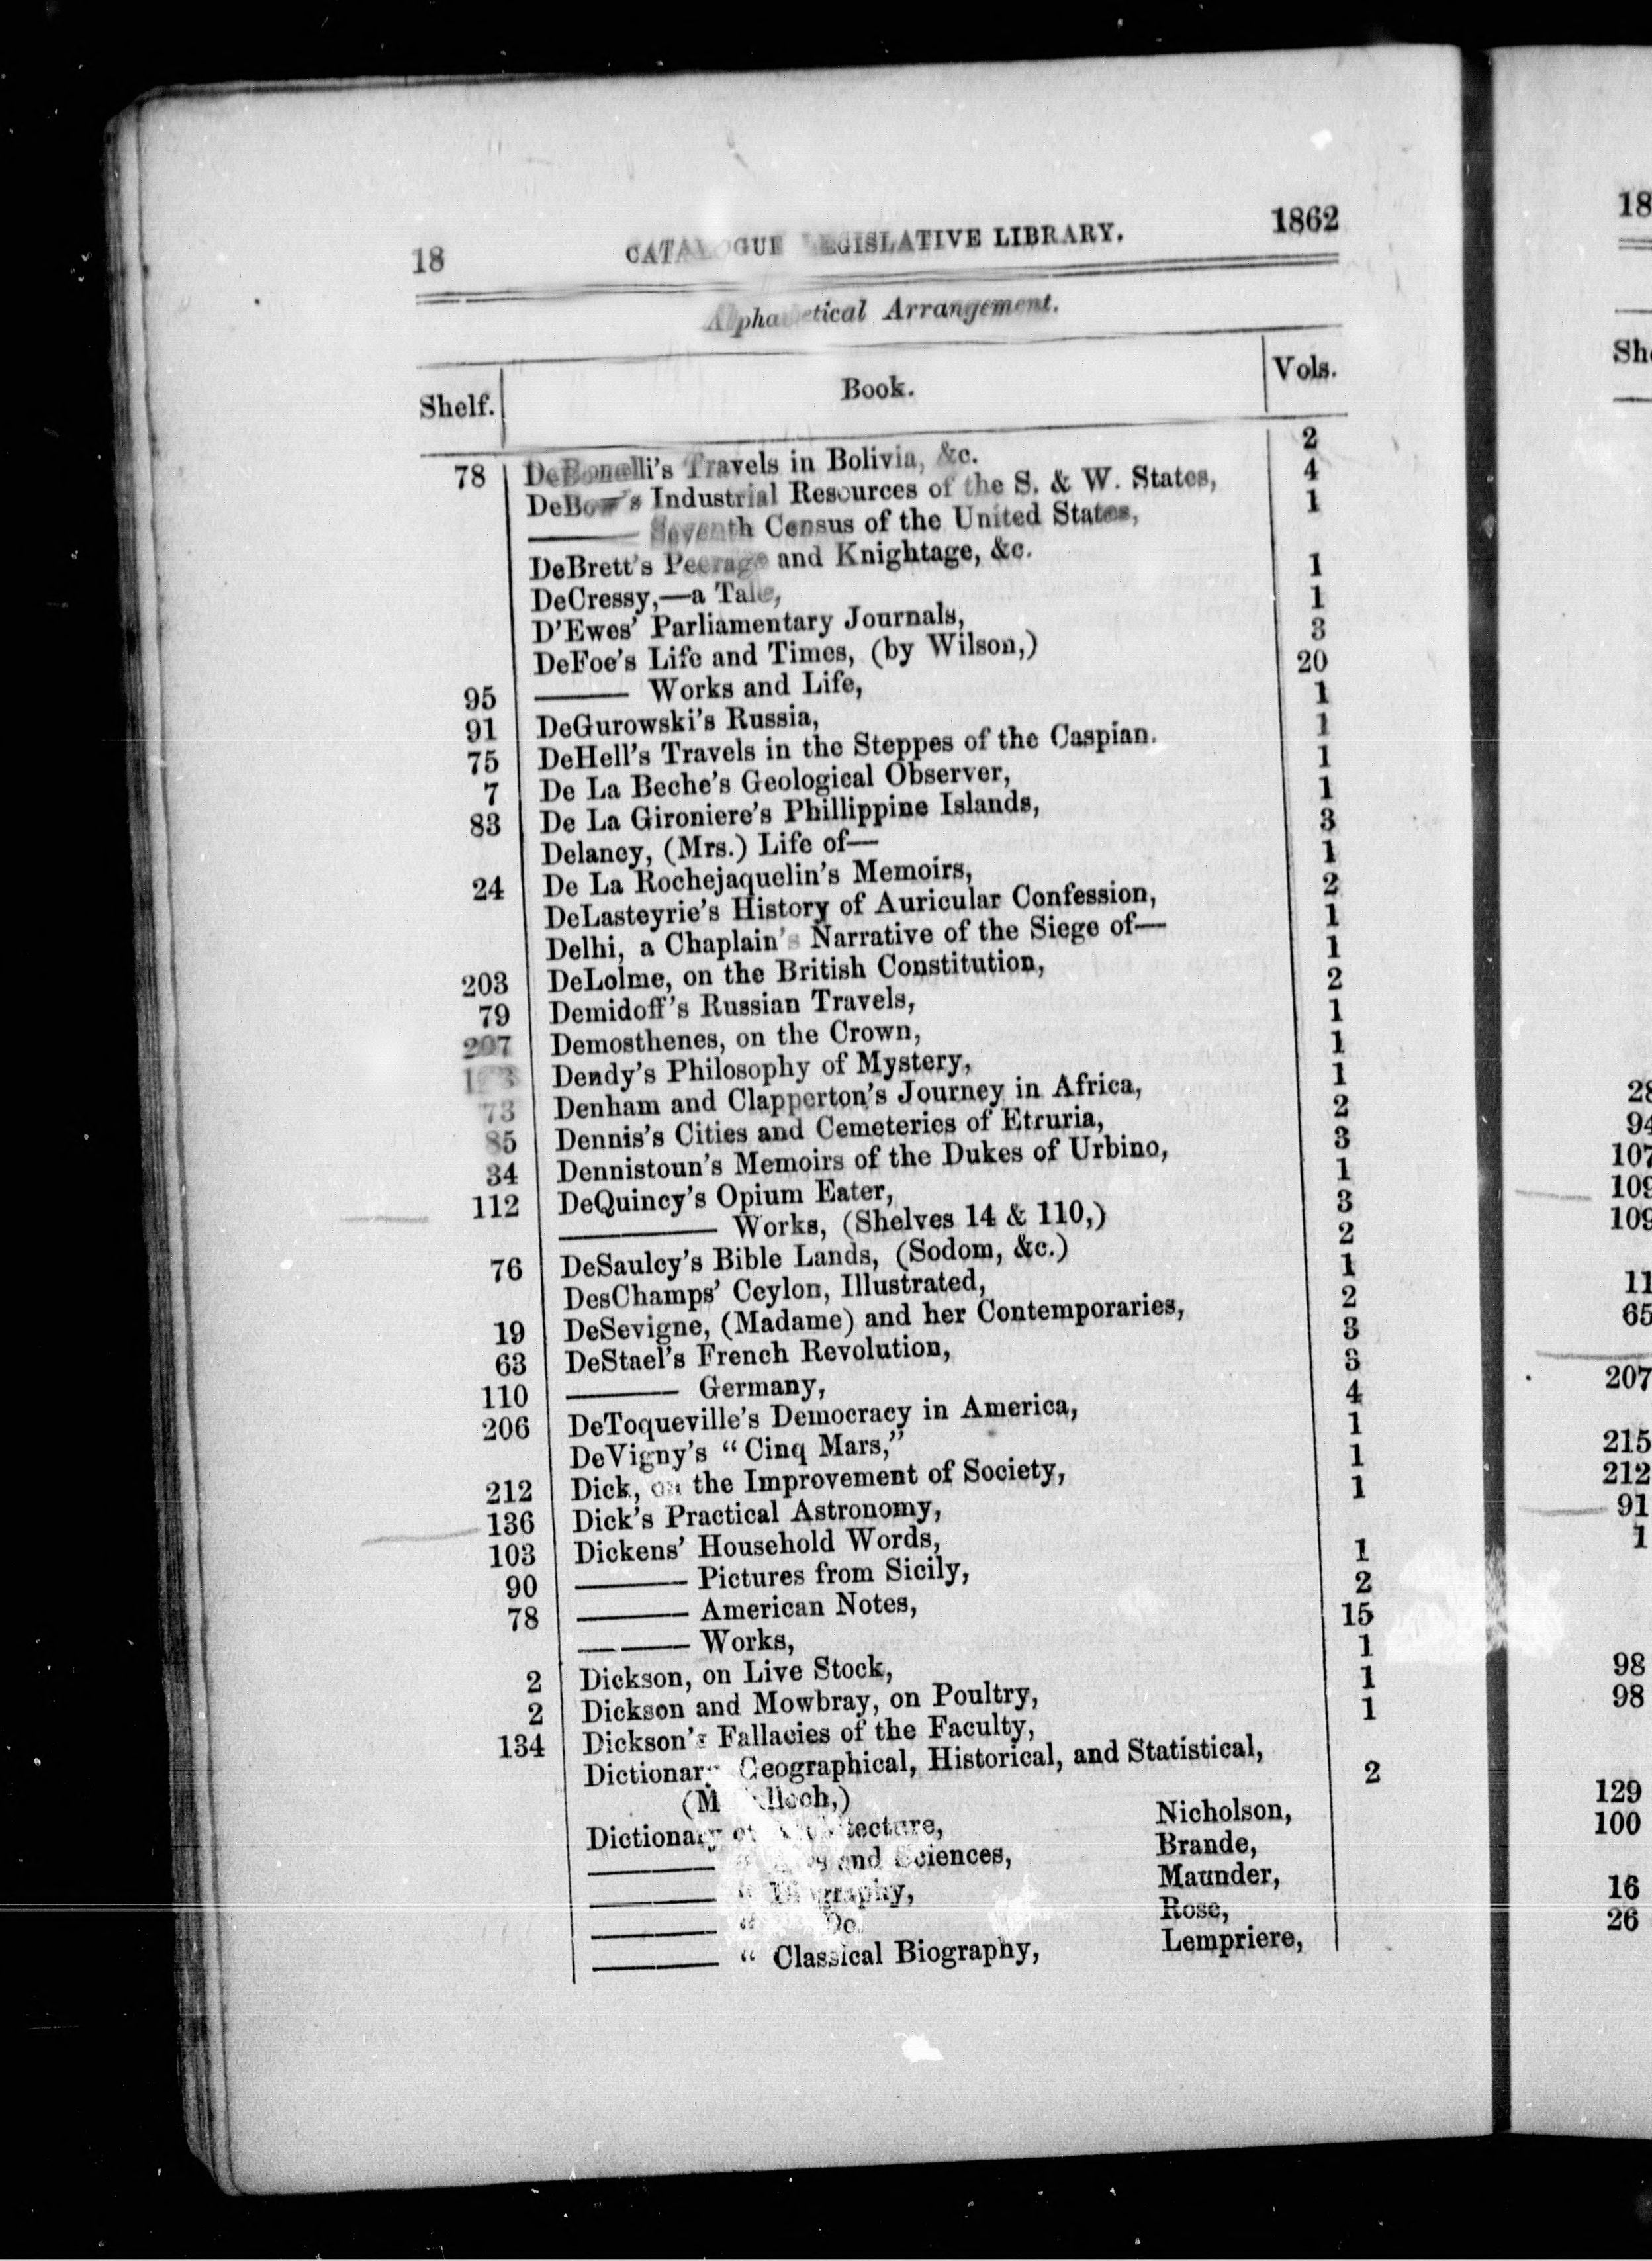 18 CATALOGUE LEGISLATIVE LIBRARY. 1862
Alphabetical Arrangement.
Shelf. Book. Vols.
78 DeBonelli's Travels in Bolivia, &c. 2
DeBow's Industrial Resources of the S. & W. States, 4
——— Seventh Census of the United States, 1
DeBrett's Peerage and Knightage, &c.
DeCressy,—a Tale, 1
D'Ewes' Parliamentary Journals, 1
DeFoe's Life and Times, (by Wilson,) 3
95 ——— Works and Life, 20
91 DeGurowski's Russia, 1
75 DeHell's Travels in the Steppes of the Caspian. 1
7 De La Beche's Geological Observer, 1
83 De La Gironiere's Phillippine Islands, 1
Delaney, (Mrs.) Life of— 3
24 De La Rochejaquelin's Memoirs, 1
DeLasteyrie's History of Auricular Confession, 2
Delhi, a Chaplain's Narrative of the Siege of— 1
203 DeLolme, on the British Constitution, 1
79 Demidoff's Russian Travels, 2
207 Demosthenes, on the Crown, 1
Dendy's Philosophy of Mystery, 1
73 Denham and Clapperton's Journey in Africa, 1
85 Dennis's Cities and Cemeteries of Etruria, 2
34 Dennistoun's Memoirs of the Dukes of Urbino, 3
112 DeQuincy's Opium Eater, 1
——— Works, (Shelves 14 & 110,) 3
76 DeSaulcy's Bible Lands, (Sodom, &c.) 2
DesChamps' Ceylon, Illustrated, 1
19 DeSevigne, (Madame) and her Contemporaries, 2
63 DeStael's French Revolution, 3
110 ——— Germany, 3
206 DeToqueville's Democracy in America, 4
DeVigny's "Cinq Mars," 1
212 Dick, on the Improvement of Society, 1
136 Dick's Practical Astronomy, 1
103 Dickens' Household Words,
90 ——— Pictures from Sicily, 1
78 ——— American Notes, 2
——— Works, 15
2 Dickson, on Live Stock, 1
2 Dickson and Mowbray, on Poultry, 1
134 Dickson's Fallacies of the Faculty, 1
Dictionary Geographical, Historical, and Statistical,
(M'Culloch,) 2
Dictionary of Architecture, Nicholson,
——— " Arts and Sciences, Brande,
——— " Biography, Maunder,
——— " Do. Rose,
——— " Classical Biography, Lempriere,
18
She
28
94
107
109
109
11
65
207
215
212
91
1
98
98
129
100
16
26